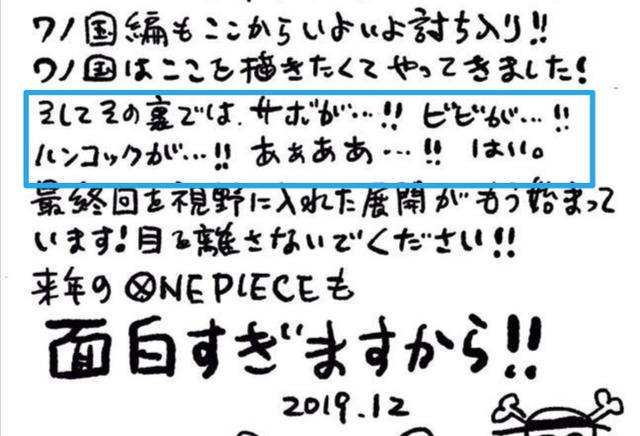 ワノ国編もここからいよいよ討ち入り!!
ワノ国はここを描きたくてやってきました!
そしてその裏では、サボが…!! ビビが…!!
ハンコックが…!! あぁああ…!! はい。
最終回を視野に入れた展開がもう始まって
います!目を離さないでください!!
来年のONE PIECEも
面白すぎますから!!
2019.12